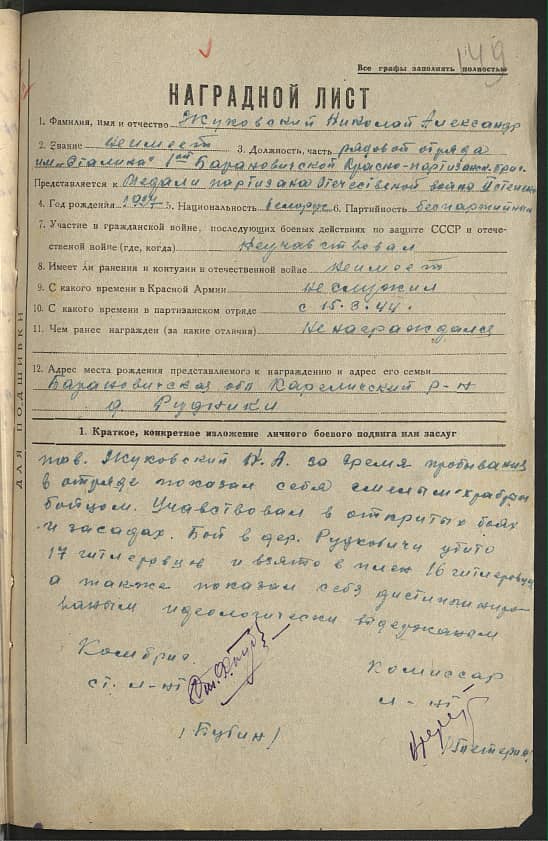 149
Все графы заполнять полностью
НАГРАДНОЙ ЛИСТ
1. Фамилия, имя и отчество Жуховский Николай Александр
2. Звание неимеет 3. Должность, часть рядовой отряда
им. „Сталина" 1ой Барановичской Красно-партизанск. бриг.
Представляется к Медали партизана Отечественой войны 2 степени
4. Год рождения 5. Национальность белорус 6. Партийность беспартийный
7. Участие в гражданской войне, последующих боевых действиях по защите СССР и отече-
ственой войне (где, когда) Неучавствовал
8. Имеет ли ранения и контузии в отечественой войне Неимеет
9. С какого времени в Красной Армии неслужил
10. С какого времени в партизанском отряде с 15.3.44.
11. Чем ранее награжден (за какие отличия) Ненаграждался
12. Адрес места рождения представляемого к награждению и адрес его семьи
Барановичская обл Кареличский р-н
д. Рудники
ДЛЯ ПОДШИВКИ
1. Краткое, конкретное изложение личного боевого подвига или заслуг
тов. Жуховский Н. А. за время пробывания
в отряде показал себя смелым храбрым
бойцом. Учавствовал в открытых боях
и засадах. Бой в дер. Рудковичи убито
17 гитлеровцев и взято в плен 16 гитлеровцев
а также показал себя дистиплиниро-
ваным идеологически выдержаным
Комбриг
ст. л-нт
/Бубин/
Комиссар
л-нт